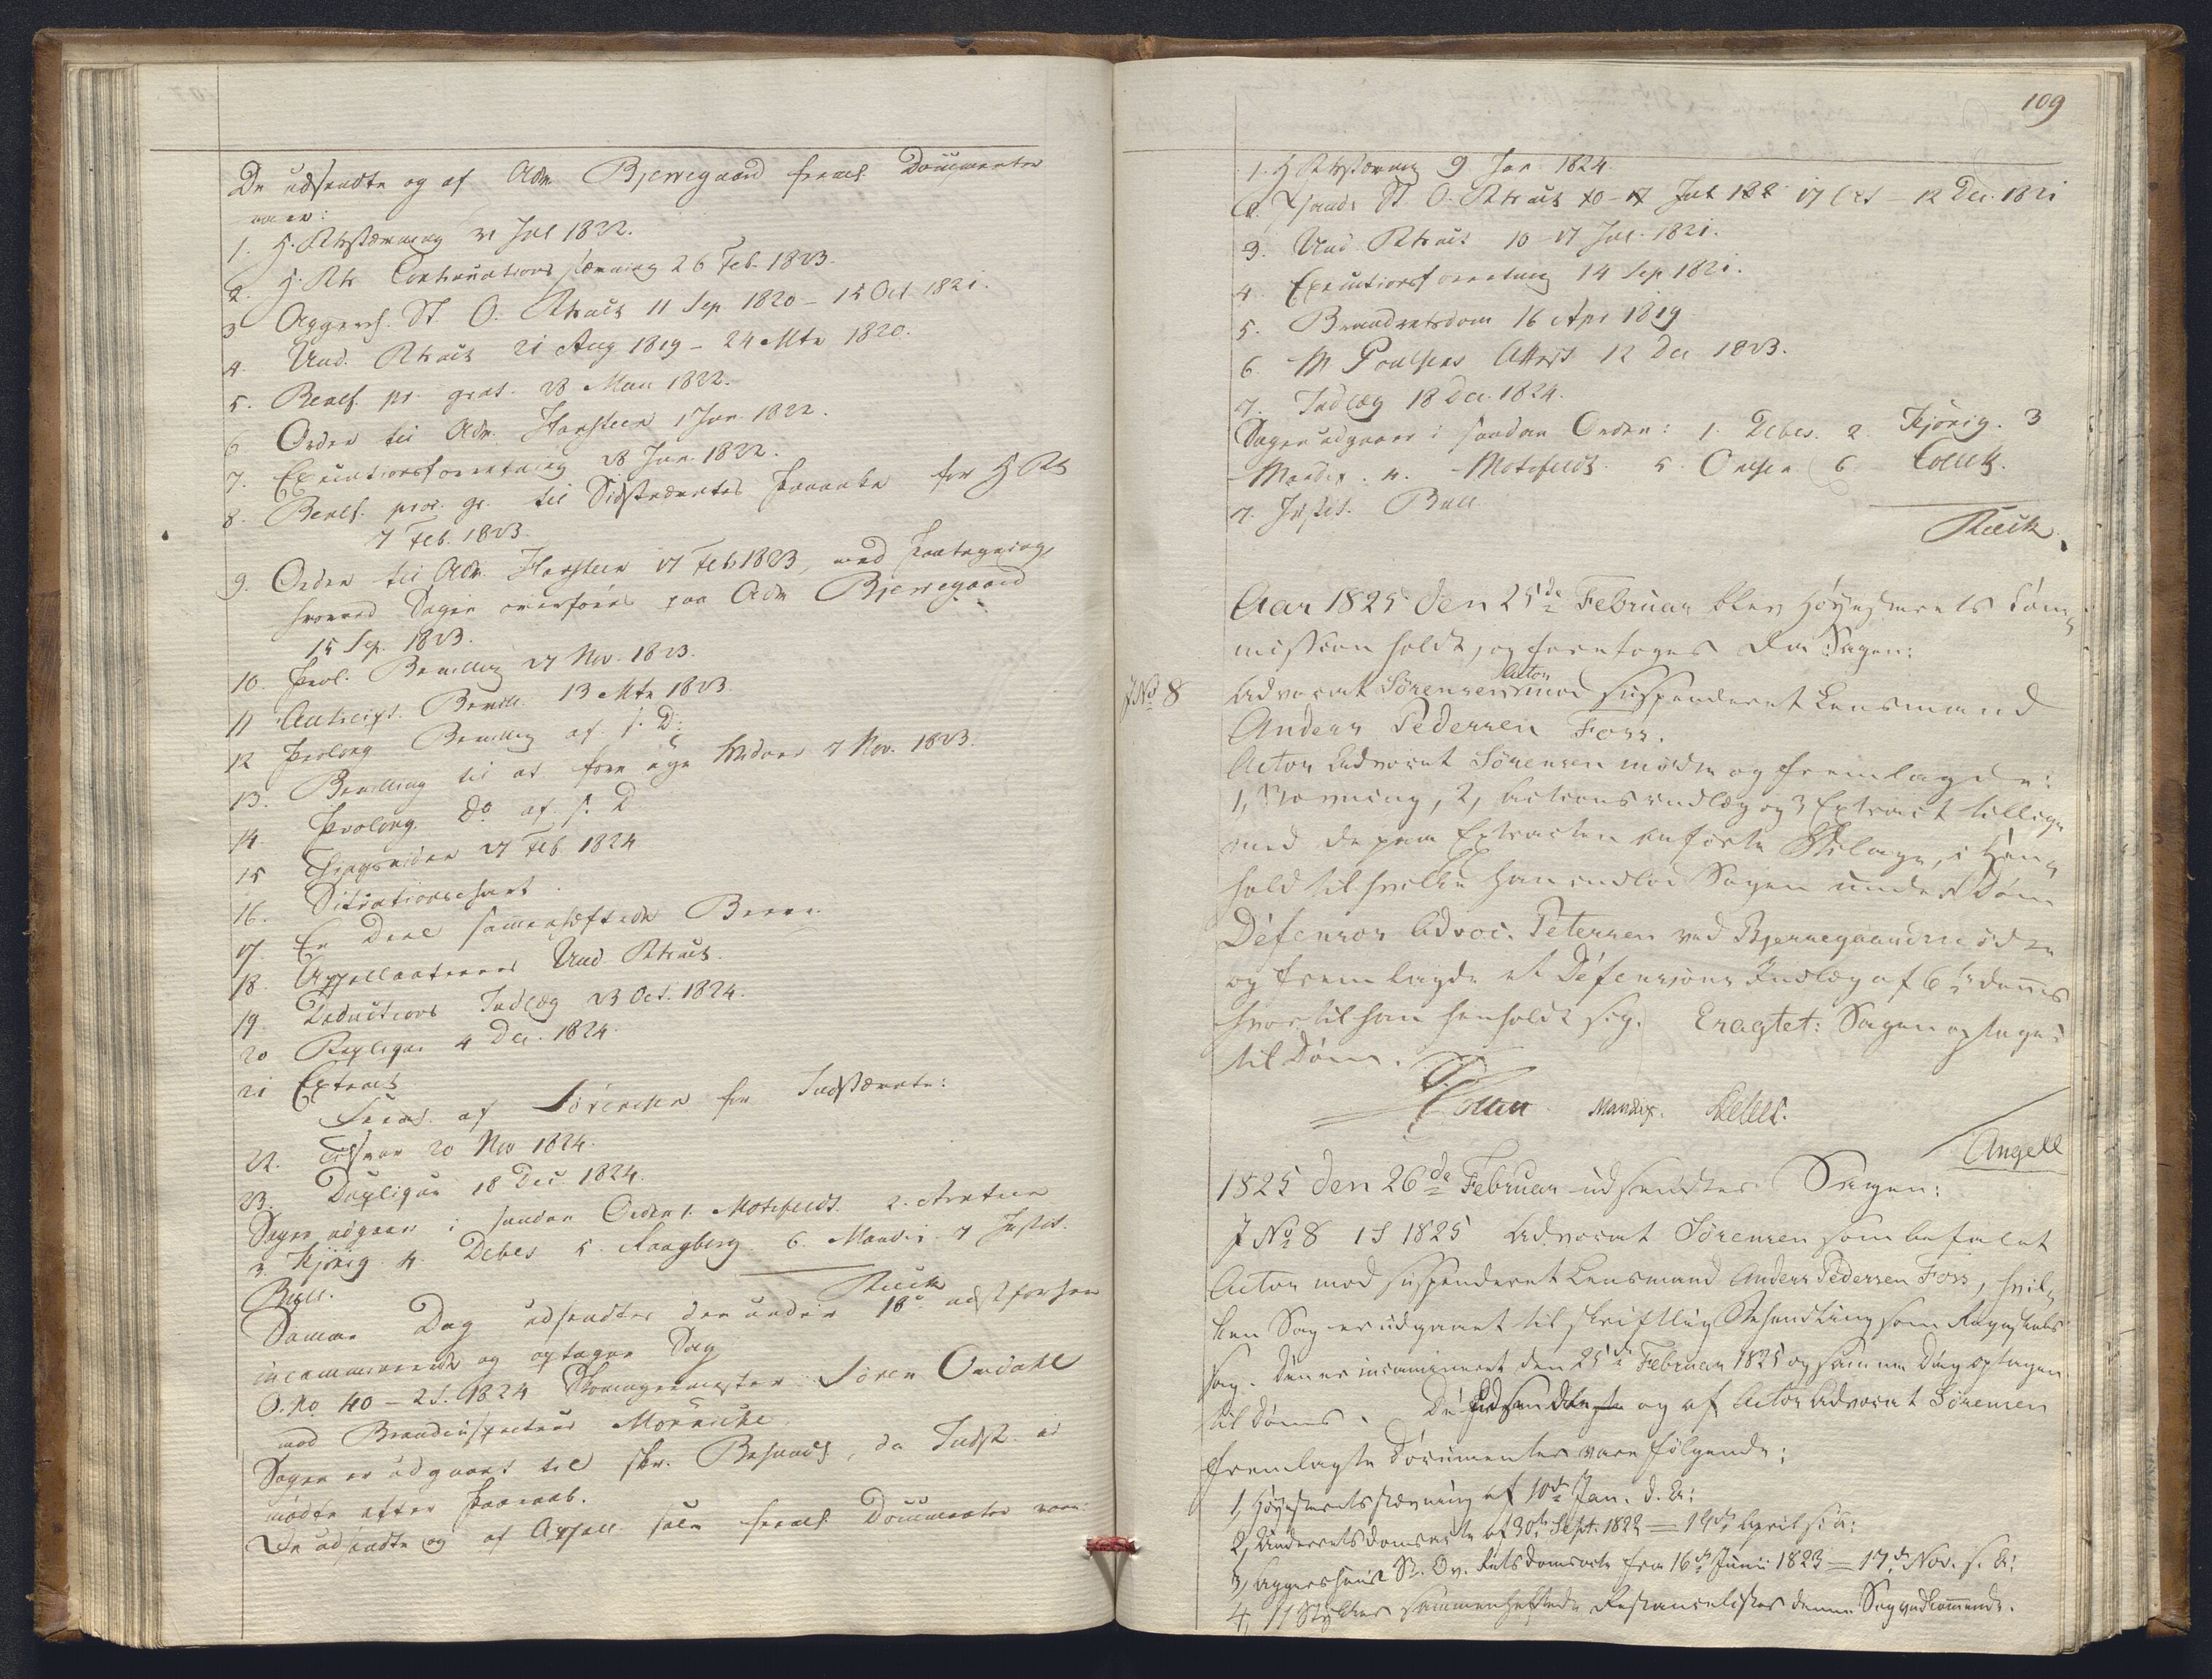 De udsendte og af Adv. Bjerregaard freml. Documenter
vare:
1. H. Rtsstævning 31 Jul 1822.
2. H. Rts Continuations stævning 26 Feb. 1823.
3 Aggersh. St. O. Rtsact 11 Sep 1820 – 15 Oct 1821.
4. Und. Rtsact 21 Aug 1819 – 24 Mts 1820.
5. Benef. pr. grat. 28 Mai 1822.
6 Orden til Adv. Hansteen 1 Jun. 1822.
7. Executionsforretning 28 Jun. 1822.
8. Benef. pro. gr. til Sidstnævntes Paaanke for H. Rt
7 Feb. 1823.
9. Orden til Adv. Hansteen 17 Feb 1823, med Paategning,
hvorved Sagen overføres paa Adv Bjerregaard
15 Sep. 1823.
10. Prol. Bevilling 27 Nov. 1823.
11 Anticip. Bevill. 13 Mts 1823.
12 Prolong Bevilling af s. D:
13. Bevilling til at føre nye Vidner 7 Nov. 1823.
14 Prolong. do af s. D
15 Thingsvidne 27 Feb 1824
16. Situationschart.
17. En Deel sammenhæftede Breve
18. Appellanternes Und. Rtsact.
19. Deductions Indlæg 23 Oct. 1824.
20 Repliqve 4 Dec. 1824.
21 Extract
Freml. af Sörensen for Indstævnte:
22. Tilsvar 20 Nov 1824.
23. Dupliqve 18 Dec. 1824.
Sagen udgaaer i saadan Orden 1. Motzfeldt. 2.
3. Hjörig. 4. Debes 5. Faugberg 6. Mandix 7 Justit.
Bull.
Rieck
Samme Dag udsendtes den under 18de næstforhen
incaminerede og optagne Sag
O. No 40 – 2 S. 1824 Skomagermester Sören Omdahl
mod Brandinspecteur Mörniche
Sagen er udgaaet til skr. Behandl., da Indst. ei
mödte efter Paaraab.
De udsendte og af Appell. selv freml. Documenter vare:
109
1. H. Rtsstævning 9 Jan. 1824.
2. Chsands St. O. Rtsact 17 Oct – 12 Dec. 1821
3. Und. Rtsact 10 – 17 Jul. 1821.
4. Executionsforretning 14 Sep 1821.
5. Brandretsdom 16 Apr 1819
6. M. Poulsens Attest 12 Dec 1823.
7. Indlæg 18 Dec. 1824.
Sagen udgaaer i saadan Orden: 1. Debes. 2. Hjörig. 3
Mandix. 4. Motzfeldt. 5. Omsen 6 Collett.
7. Justit. Bull
Rieck.
Aar 1825 den 25de Februar blev Höyesterets Com-
mission holdt, og foretoges den Sagen:
J No 8 Advocat Sörensen Actor mod suspenderet Lensmand
Anders Pedersen Foss.
Actor Advocat Sörensen mödte og fremlagde:
1, Stævning, 2, Actions indlæg og 3, Extract tillige
med de paa Extracten anförte Bilage, i Hen-
hold til hvilke han indlod Sagen under Dom
Defensor Advoc. Petersen ved Bjerregaard mödte
og fremlagde et Defensions Indlæg af 6te dennes
hvortil han henholdt sig. Eragtet: Sagen optages
til Dom.
Omsen Mandix. Debes.
Angell
1825 den 26de Februar udsendtes Sagen:
J No 8 1 S 1825 Advocat Sörensen som befalet
Actor mod suspenderet Lensmand Anders Pedersen Foss, hvil-
ken Sag er udgaaet til skriftlig Behandling som Regnskabs
sag. Den er incamineret den 25de Februar 1825 og samme Dag optagen
til Doms. De udsendte og af Actor Advocat Sörensen
fremlagte Documenter vare fölgende:
1, Höyesteretsstævning af 10de Jan. d. A:
2, Underretsdomsacte af 30te Sept. 1822 – 19de April s. A:
3, Aggershuus St. Ov. Retsdomsacte fra 16de Junii 1823 – 17de Nov. s. A:
4, 11 Stykker sammenheftede Restancelister denne Sag vedkommende.